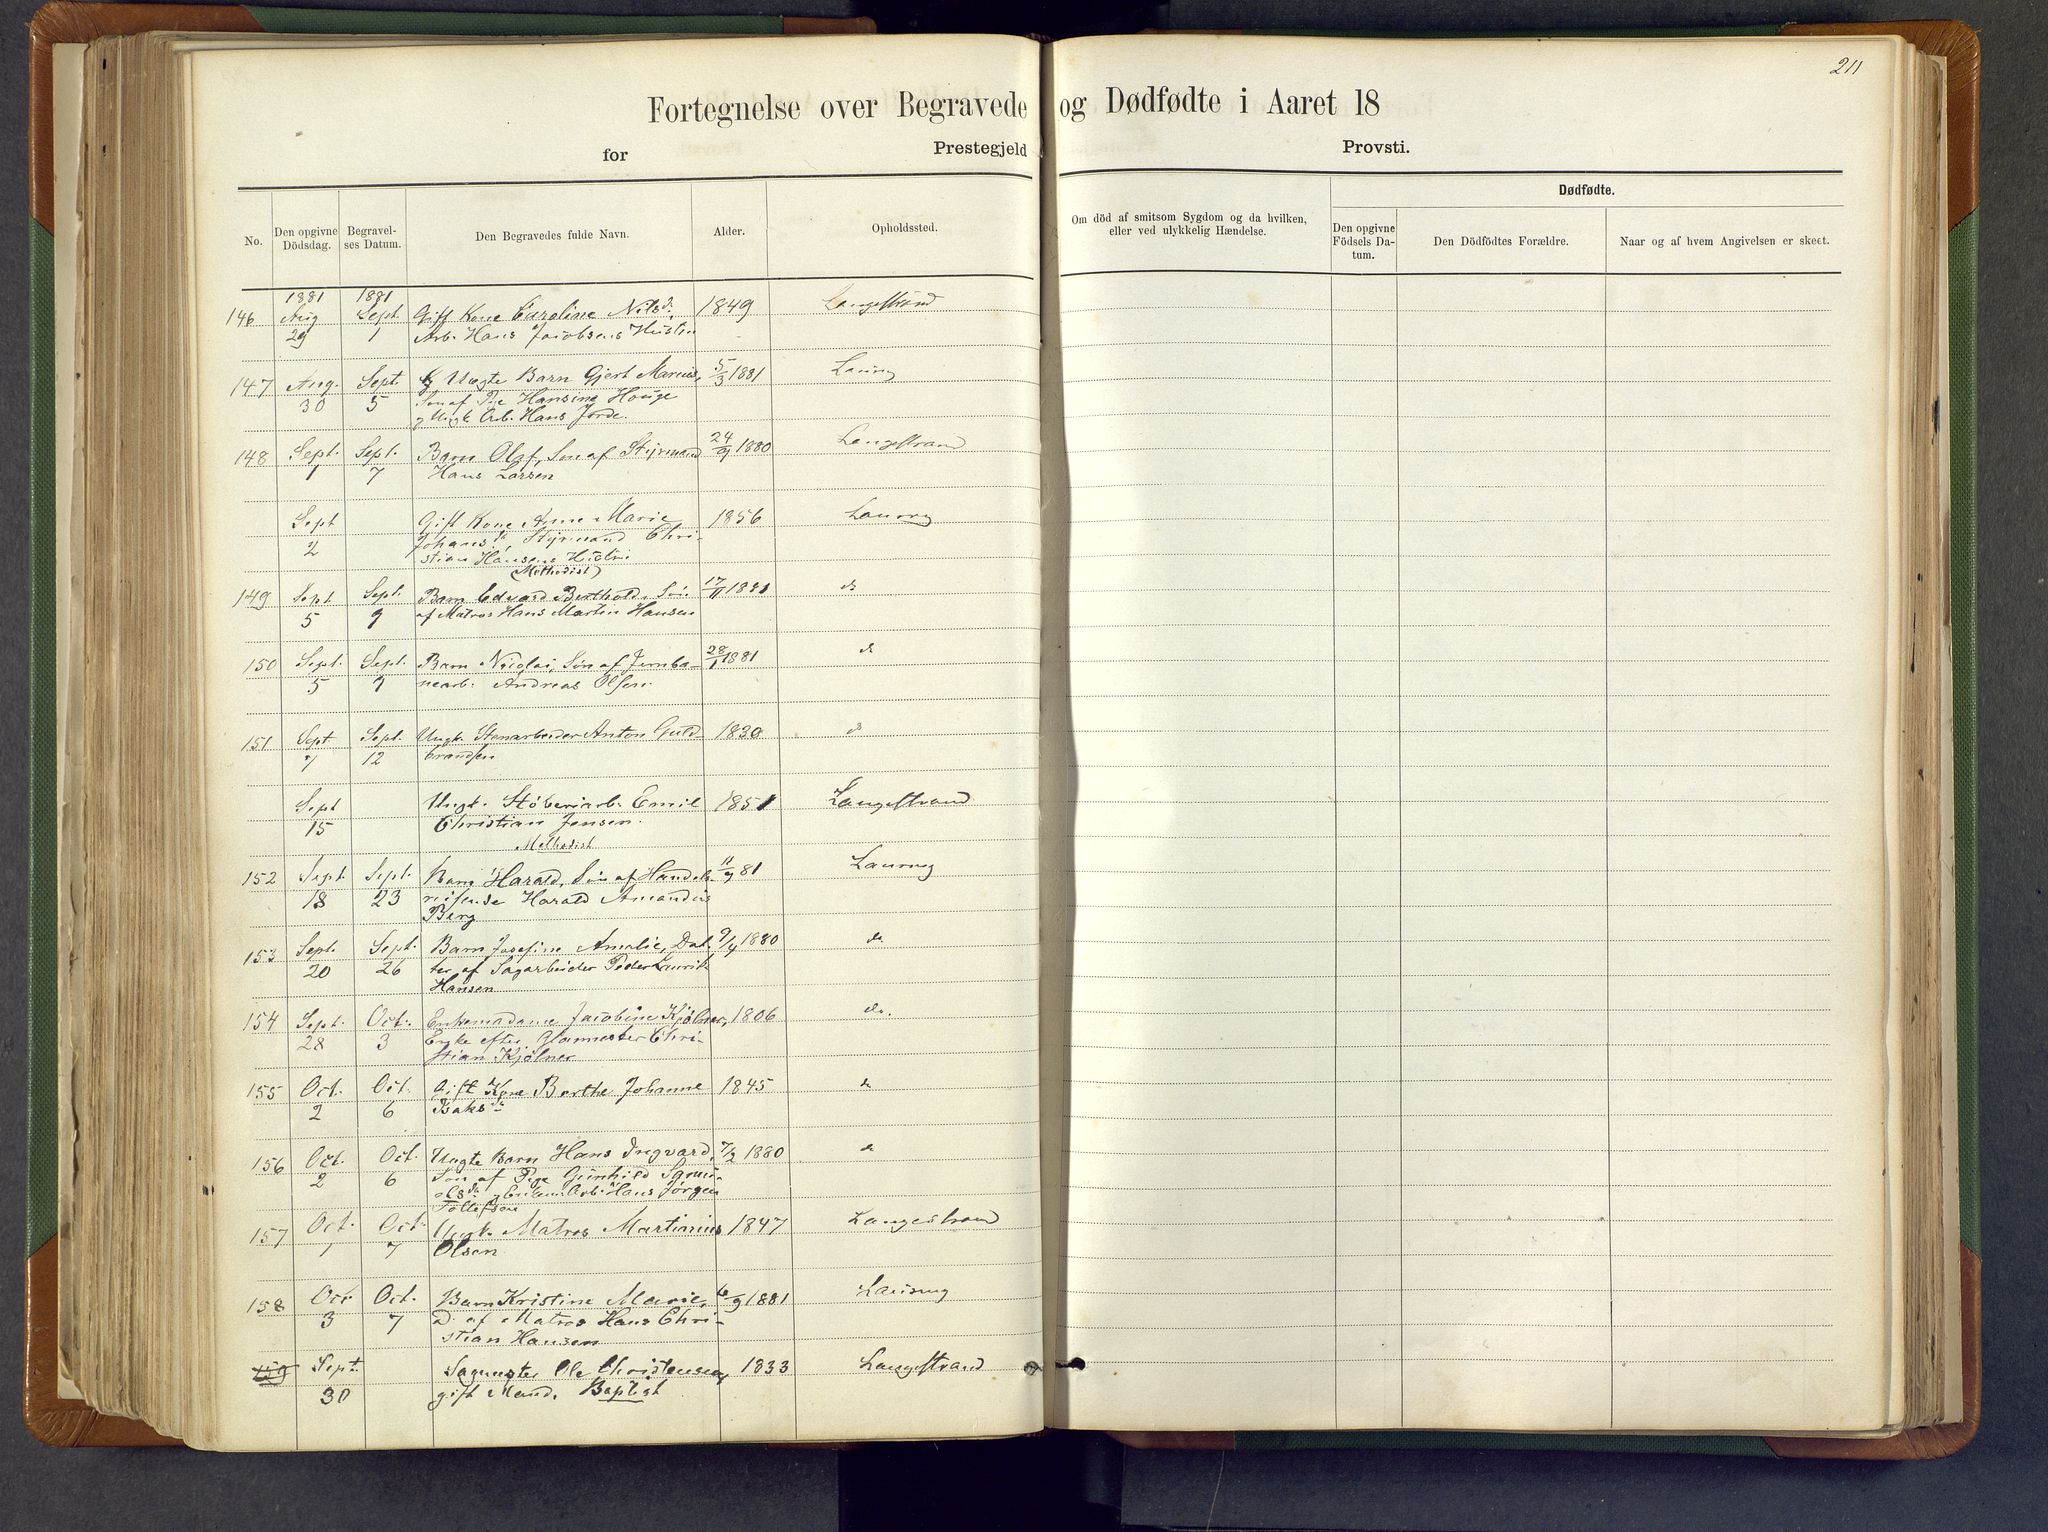 211
Fortegnelse over Begravede og Dødfødte i Aaret 18
for Prestegjeld Provsti.
No. Den opgivne Dödsdag. Begravelses Datum. Den Begravedes fulde Navn. Alder. Opholdssted. Om död af smitsom Sygdom og da hvilken, eller ved ulykkelig Hændelse. Dødfødte.
Den opgivne Födsels Datum. Den Dödfödtes Forældre. Naar og af hvem Angivelsen er skeet.
1881 1881
146 Aug Sept Gift Kone Caroline Nilsd. 1849 Langestrand
29 1 Arb. Hans Jacobsens Hustru
147 Aug. Sept. Uægte Barn Gjert Marius, 5/3 1881 Laurvig
30 5 Søn af Pige Hansine Hauge
og Ungk. Arb. Hans Jorde.
148 Sept. Sept. Barn Olaf, Søn af Styrmand 24/9 1880 Langestrand
1 7 Hans Larsen
Sept Gift Kone Anne Marie 1856 Laurvig
2 Johansd. Styrmand Chri-
stian Hansens Hustru
(Methodist)
149 Sept Sept. Barn Edvard Berthold, Søn 17/ 1881 do
5 9 af Matros Hans Martin Hansen
150 Sept. Sept. Barn Nicolai, Søn af Jernba- 28/1 1881 do
5 9 nearb. Andreas Olsen
151 Sept Sept. Ungk. Stenarbeider Anton Guld- 1830 do
7 12 brandsen
Sept Ungk. Støberiarb. Emil 1851 Langestrand
15 Christian Jensen.
Methodist
152 Sept. Sept. Barn Harald, Søn af Handels- 11/9 81 Laurvig
18 23 reisende Harald Amandus
Berg
153 Sept. Sept. Barn Josefine Amalie, Dat- 9/4 1880 do
20 26 ter af Sagarbeider Peder Laurits
Hansen
154 Sept. Oct. Enkemadame Jacobine Kjølner, 1806 do.
28 3 Enke efter Glasmester Chri-
stian Kjølner
155 Oct. Oct. Gift Kone Berthe Johanne 1845 do
2 6 Baksd.
156 Oct. Oct. Uægte Barn Hans Ingvard, 7/2 1880 do
2 6 Søn af Pige Gunhild Samu-
elsd. og Enkem. Arb. Hans Jørgen
Tollefsen
157 Oct. Oct. Ungk. Matros Martinius 1847 Langestrand
1 7 Olsen
158 Oct Oct. Barn Kristine Marie, 6/9 1881 Laurvig
3 7 D. af Matros Hans Chri-
stian Hansen
159 Sept. Sagmester Ole Christensen 1833 Langestrand
30 gift Mand. Baptist